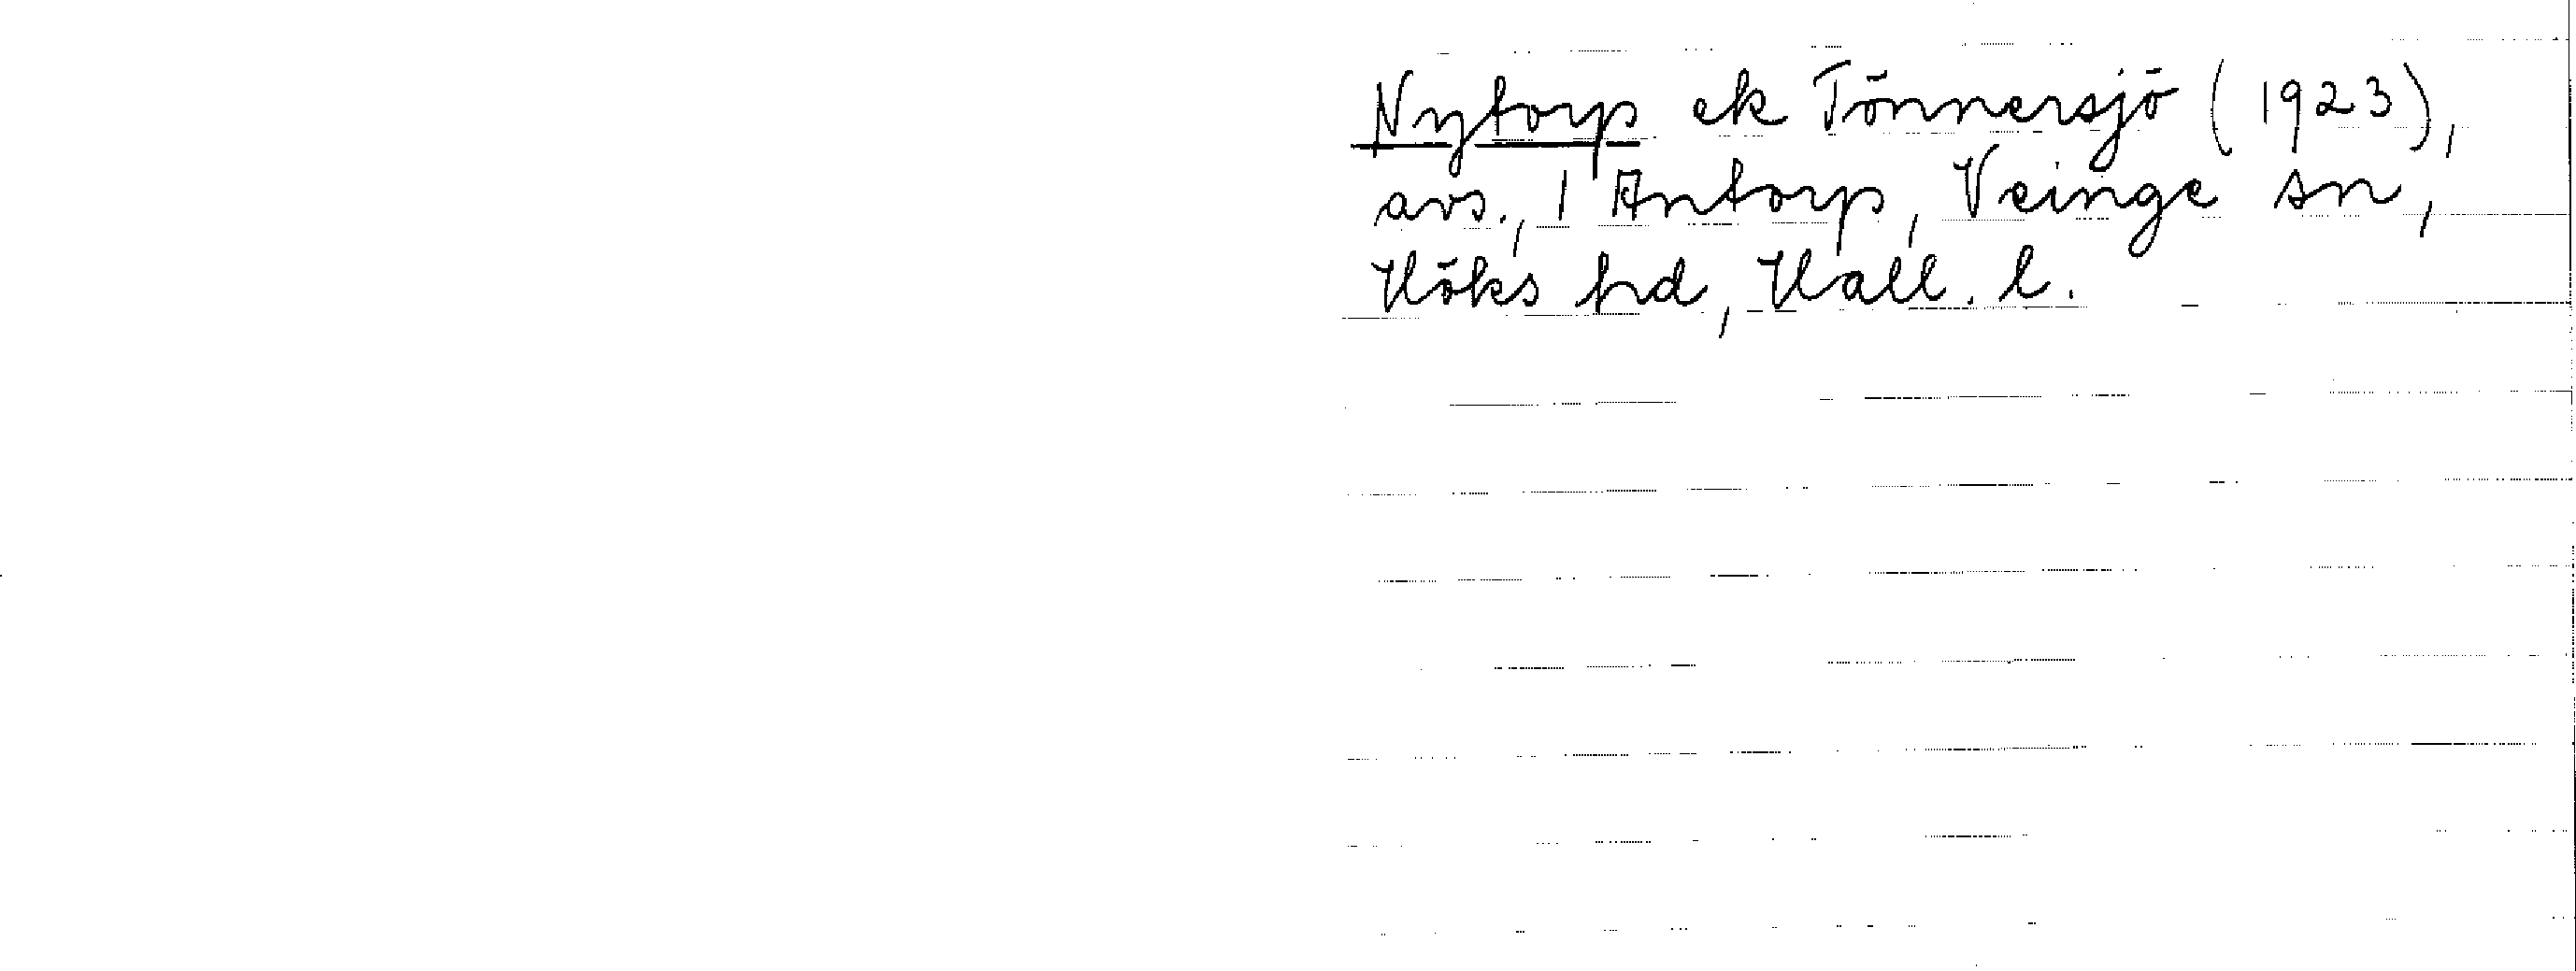 Nytorp ek Tönnersjö (1923),
avs., 1 Antorp, Veinge sn,
Höks hd, Hall. l.